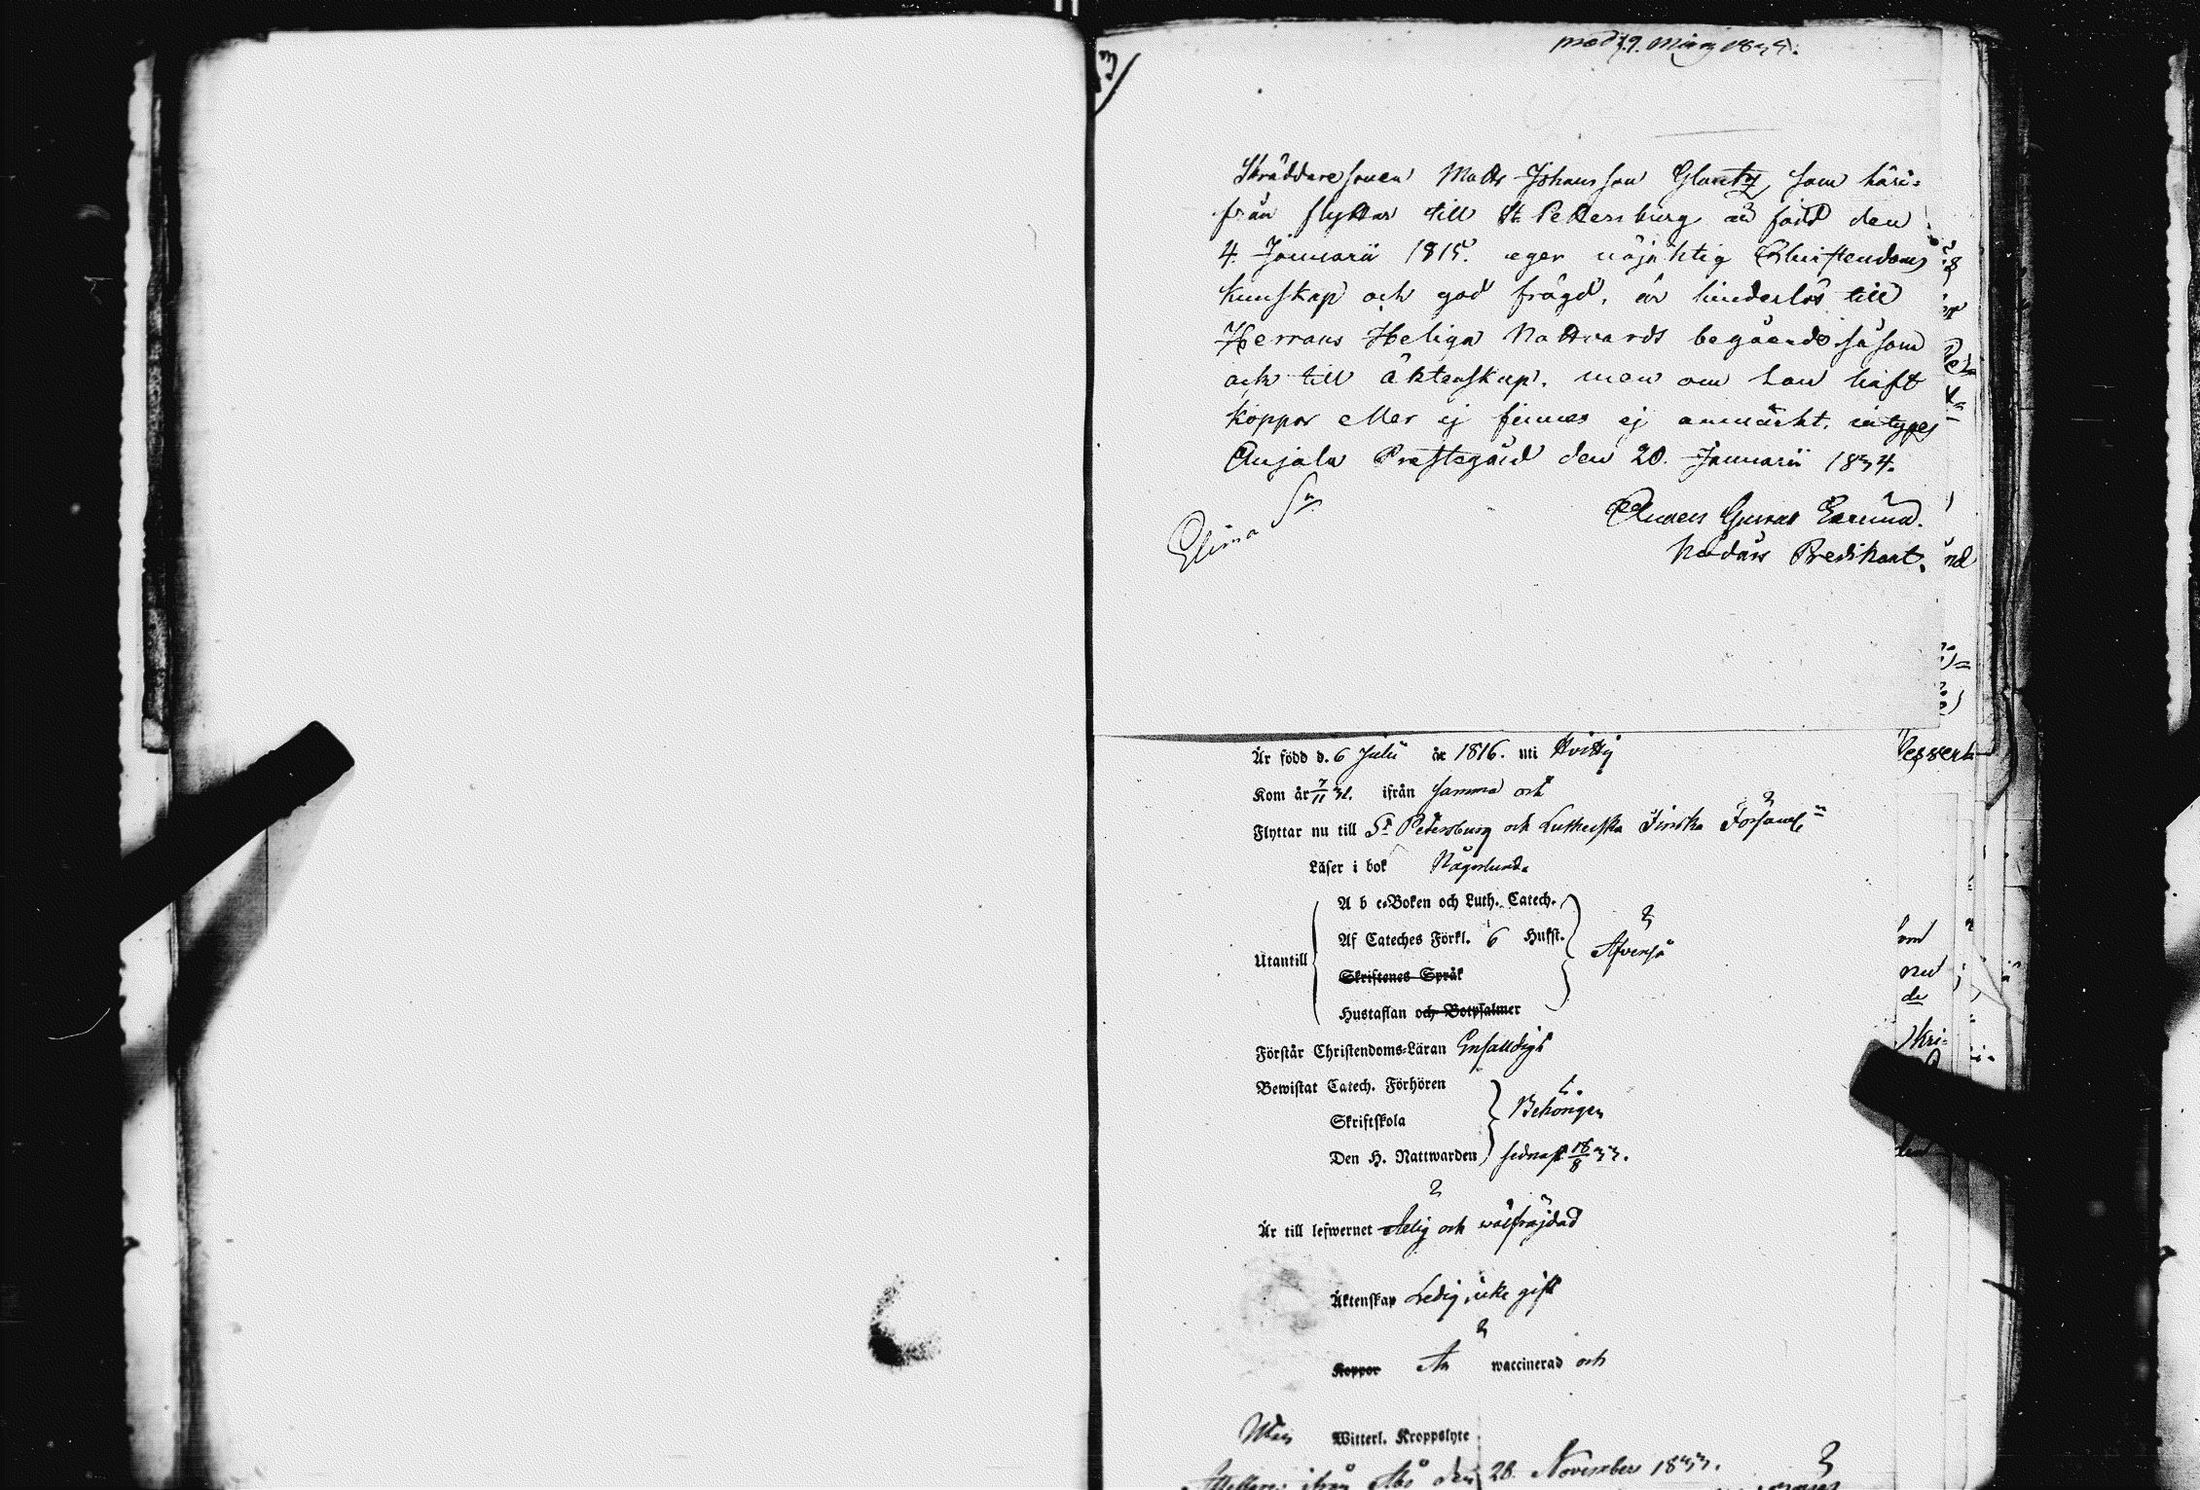 prod. 19. Mars 1834.
Skräddaresonen Matts Johansson Glantz, som häri=
från flyttar till St Pettersburg är född den
4. Januarii 1815. eger nöjaktig Christendoms
kunskap och god frägd, är hinderlös till
Herrans Heliga Nattvards begående såsom
och till äktenskap. men om han haft
koppor eller ej finnes ej anmärkt. intygas
Anjala Prestegård den 20. Januarii 1834.
Elimä Sn
Anders Gustaf
Nådårs Predikant.
Är född d. 6 Julii år 1816. uti Hvittis
Kom år 7/11 31. ifrån samma och
Flyttar nu till St Petersburg och Lutherska Finska Församln
Läser i bok Någorlunda
A b c=Boken och Luth. Catech.
Af Cateches Förkl. 6 Hufst.
Utantill
Äfvenså
Skriftenes Språk
Hustaflan och Botpsalmer
Förstår Christendoms=Läran Enfalldigt
Bewistat Catech. Förhören
Skriftskola
Behörigen
Den H. Nattwarden senast 18/8 33.
Är till lefwernet ärlig och wälfräjdad
Äktenskap Ledig, icke gift
Koppor Är waccinerad och
Utan Witterl. Kroppslyte
ifrån Åbo den 28. November 1833.